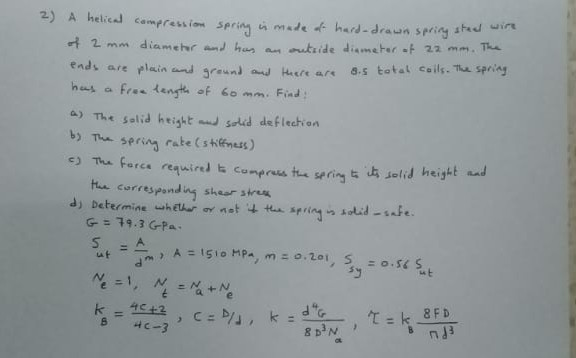 2) A helical compression spring is made of hard-drawn spring steel wire
of 2 mm diameter and has an outside diameter of 22 mm. The
ends are plain and ground and there are 8.5 total coils. The spring
has a free length of 60 mm. Find:
a) The solid height and solid deflection
b) The spring rate (stiffness)
c) The force required to compress the spring to its solid height and
the corresponding shear stress
d) Determine whether or not the spring is solid-safe.
G = 79.3 GPa.
S_ut = A/d^m, A = 1510 MPa, m = 0.201, S_sy = 0.56 S_ut
N_e = 1, N_t = N_a + N_e
K_B = (4C+2)/(4C-3), C = D/d, k = d^4G/(8D^3N_a), τ = k_B 8FD/(πd^3)